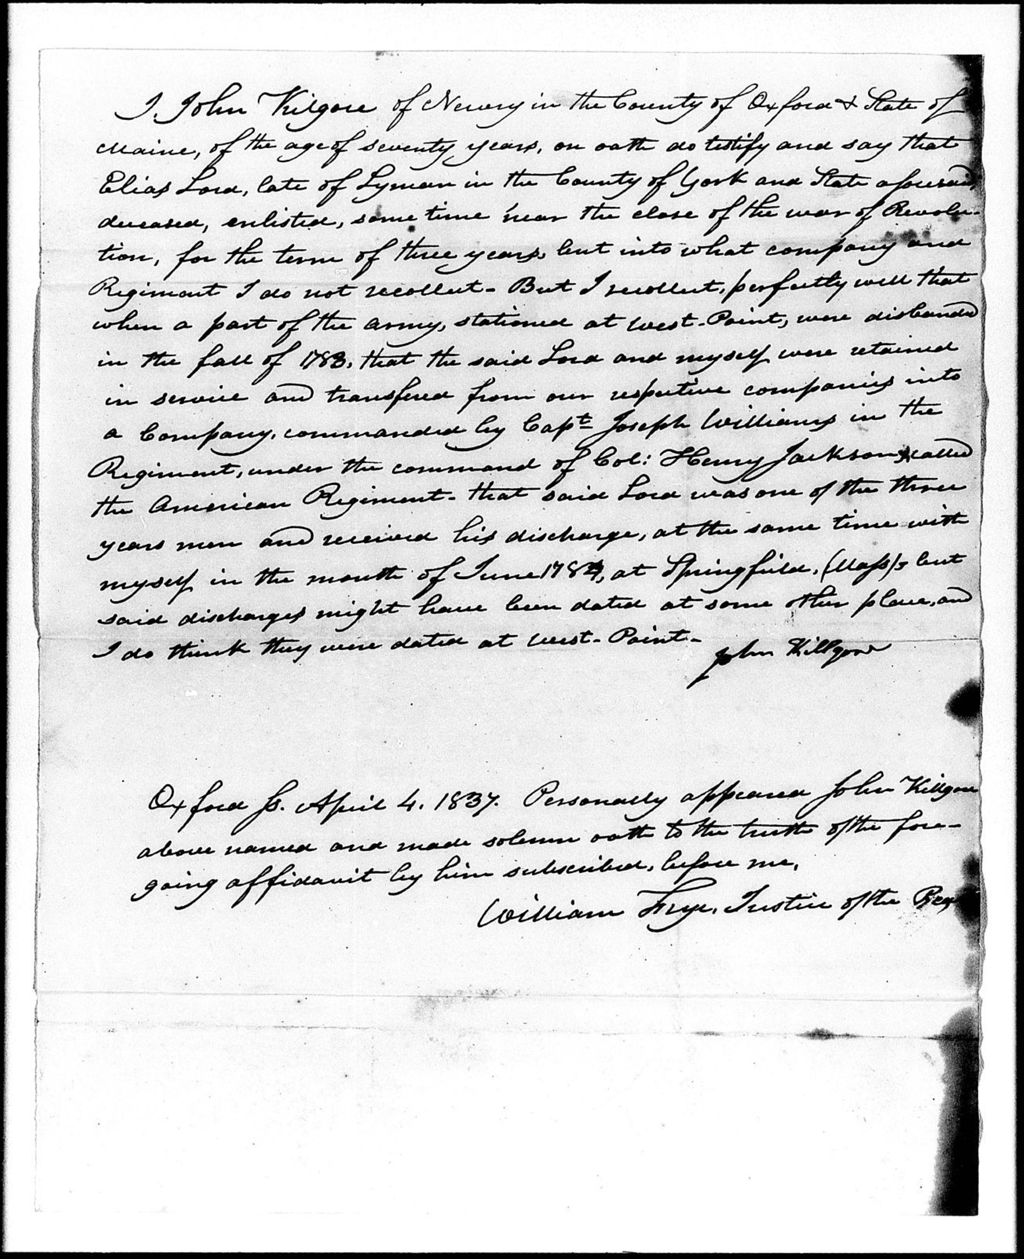 I John Kilgore of Newry in the County of Oxford & State of
Maine, of the age of seventy years, on oath do testify and say that
Elias Lord, late of Lyman in the County of York and State aforesaid
deceased, enlisted, some time near the close of the war of Revolu-
tion, for the term of three years, but into what company and
Regiment I do not recollect - But I recollect, perfectly well that
when a part of the army, stationed at West-Point, were disbanded
in the fall of 1783, that the said Lord and myself were retained
in service and transfered from our respective companies into
a Company, commanded by Capt. Joseph Williams in the
Regiment, under the command of Col: Henry Jackson called
the American Regiment - that said Lord was one of the three
years men and received his discharge, at the same time with
myself in the month of June 1784, at Springfield, (Mass) but
said discharges might have been dated at some other place, and
I do think they were dated at West-Point -
John Killgore
Oxford Ss. April 4. 1837. Personally appeared John Killgore
above named and made solemn oath to the truth of the fore-
going affidavit by him subscribed, before me,
William Frye, Justice of the Peace